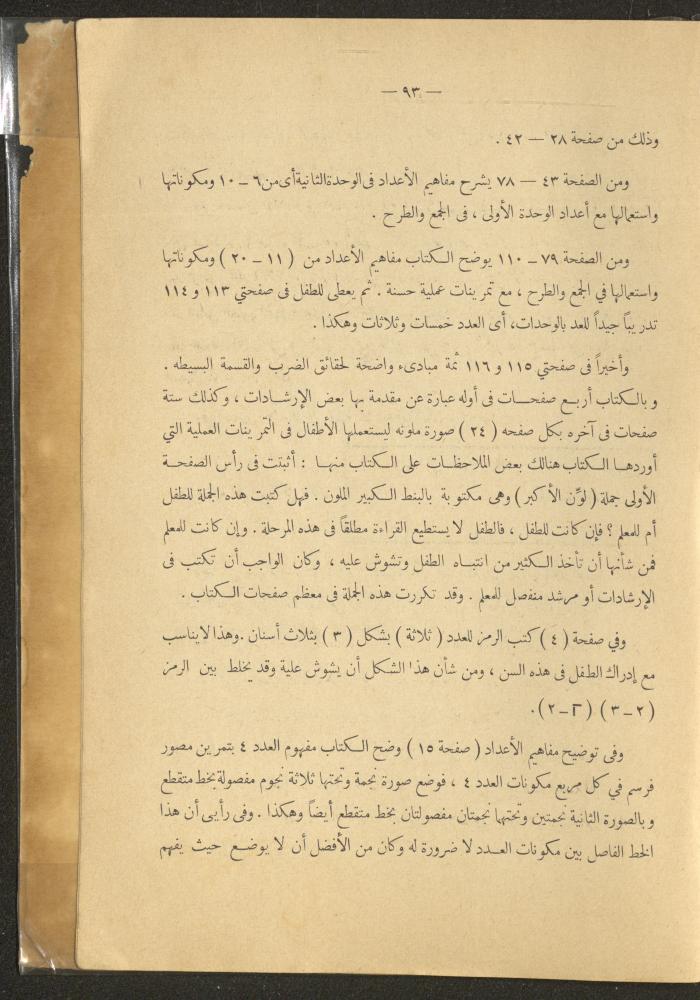 — ٩٣ —
وذلك من صفحة ٢٨ — ٤٢ .
ومن الصفحة ٤٣ — ٧٨ يشرح مفاهيم الأعداد فى الوحدة الثانية أى من ٦ ــ ١٠ ومكوناتها
واستعمالها مع أعداد الوحدة الأولى ، فى الجمع والطرح .
ومن الصفحة ٧٩ ــ ١١٠ يوضح الكتاب مفاهيم الأعداد من ( ١١ ــ ٢٠ ) ومكوناتها
واستعمالها في الجمع والطرح ، مع تمرينات عملية حسنة . ثم يعطى للطفل فى صفحتي ١١٣ و ١١٤
تدريباً جيداً للعد بالوحدات، أى العدد خمسات وثلاثات وهكذا .
وأخيراً فى صفحتي ١١٥ و ١١٦ ثمة مبادىء واضحة لحقائق الضرب والقسمة البسيطه .
وبالكتاب أربع صفحات فى أوله عبارة عن مقدمة بها بعض الإرشادات ، وكذلك ستة
صفحات فى آخره بكل صفحه ( ٢٤ ) صورة ملونه ليستعملها الأطفال فى التمرينات العملية التي
أوردها الكتاب هنالك بعض الملاحظات على الكتاب منها : أثبتت فى رأس الصفحة
الأولى جملة ( لوّن الأكبر ) وهى مكتوبة بالبنط الكبير الملون . فهل كتبت هذه الجملة للطفل
أم للمعلم ؟ فإن كانت للطفل ، فالطفل لا يستطيع القراءة مطلقاً فى هذه المرحلة . وإن كانت للمعلم
فمن شأنها أن تأخذ الكثير من انتباه الطفل وتشوش عليه ، وكان الواجب أن تكتب فى
الإرشادات أو مرشد منفصل للمعلم . وقد تكررت هذه الجملة فى معظم صفحات الكتاب .
وفي صفحة ( ٤ ) كتب الرمز للعدد ( ثلاثة ) بشكل ( ٣ ) بثلاث أسنان . وهذا لا يناسب
مع إدراك الطفل فى هذه السن ، ومن شأن هذا الشكل أن يشوش علية وقد يخلط بين الرمز
( ٢ ــ ٣ ) ( ٢ ــ ٢ ) .
وفى توضيح مفاهيم الأعداد ( صفحة ١٥ ) وضح الكتاب مفهوم العدد ٤ بتمرين مصور
فرسم في كل مربع مكونات العدد ٤ ، فوضع صورة نجمة وتحتها ثلاثة نجوم مفصولة بخط متقطع
وبالصورة الثانية نجمتين وتحتهما نجمتان مفصولتان بخط متقطع أيضاً وهكذا . وفى رأيى أن هذا
الخط الفاصل بين مكونات العدد لا ضرورة له وكان من الأفضل أن لا يوضع حيث يفهم